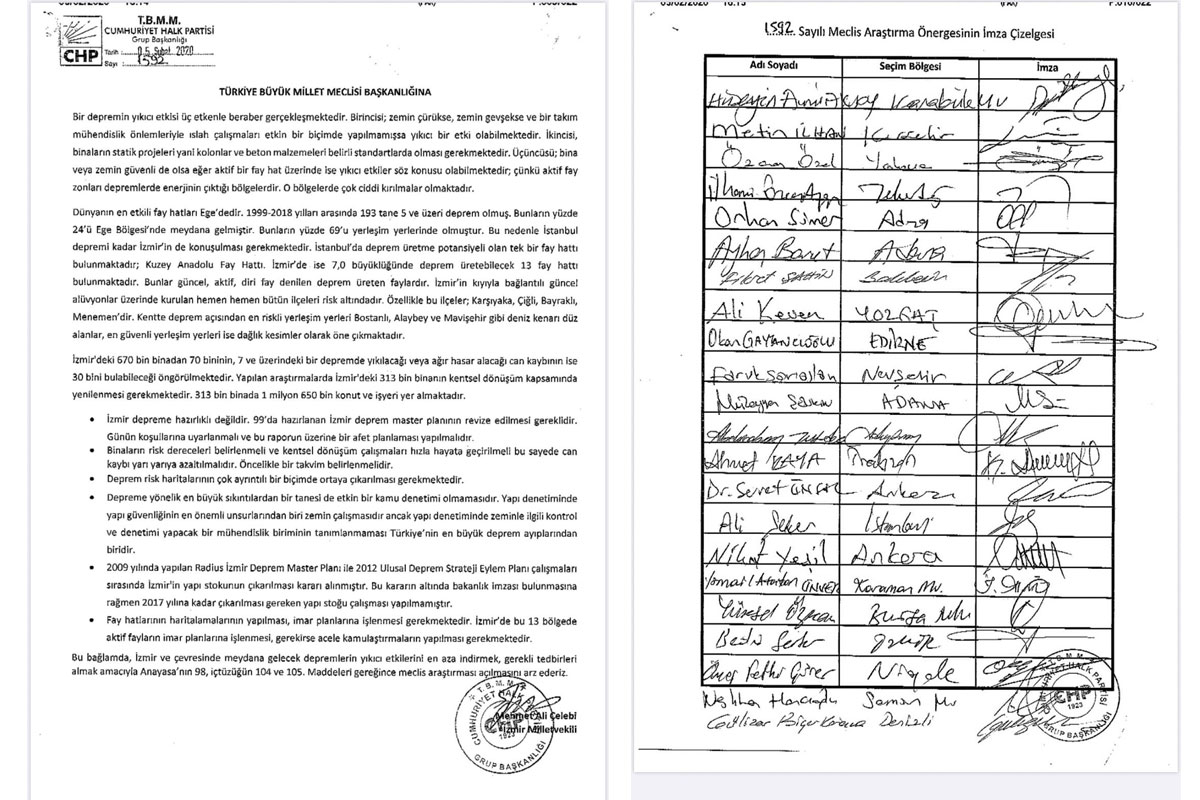 T.B.M.M.
CUMHURİYET HALK PARTİSİ
Grup Başkanlığı
CHP
Tarih : 05 Şubat 2020
Sayı : 1592
TÜRKİYE BÜYÜK MİLLET MECLİSİ BAŞKANLIĞINA
Bir depremin yıkıcı etkisi üç etkenle beraber gerçekleşmektedir. Birincisi; zemin çürükse, zemin gevşekse ve bir takım
mühendislik önlemleriyle ıslah çalışmaları etkin bir biçimde yapılmamışsa yıkıcı bir etki olabilmektedir. İkincisi,
binaların statik projeleri yani kolonlar ve beton malzemeleri belirli standartlarda olması gerekmektedir. Üçüncüsü; bina
veya zemin güvenli de olsa eğer aktif bir fay hat üzerinde ise yıkıcı etkiler söz konusu olabilmektedir; çünkü aktif fay
zonları depremlerde enerjinin çıktığı bölgelerdir. O bölgelerde çok ciddi kırılmalar olmaktadır.
Dünyanın en etkili fay hatları Ege’dedir. 1999-2018 yılları arasında 193 tane 5 ve üzeri deprem olmuş. Bunların yüzde
24’ü Ege Bölgesi’nde meydana gelmiştir. Bunların yüzde 69’u yerleşim yerlerinde olmuştur. Bu nedenle İstanbul
depremi kadar İzmir’in de konuşulması gerekmektedir. İstanbul’da deprem üretme potansiyeli olan tek bir fay hattı
bulunmaktadır; Kuzey Anadolu Fay Hattı. İzmir’de ise 7,0 büyüklüğünde deprem üretebilecek 13 fay hattı
bulunmaktadır. Bunlar güncel, aktif, diri fay denilen deprem üreten faylardır. İzmir’in kıyıyla bağlantılı güncel
alüvyonlar üzerinde kurulan hemen hemen bütün ilçeleri risk altındadır. Özellikle bu ilçeler; Karşıyaka, Çiğli, Bayraklı,
Menemen’dir. Kentte deprem açısından en riskli yerleşim yerleri Bostanlı, Alaybey ve Mavişehir gibi deniz kenarı düz
alanlar, en güvenli yerleşim yerleri ise dağlık kesimler olarak öne çıkmaktadır.
İzmir'deki 670 bin binadan 70 bininin, 7 ve üzerindeki bir depremde yıkılacağı veya ağır hasar alacağı can kaybının ise
30 bini bulabileceği öngörülmektedir. Yapılan araştırmalarda İzmir'deki 313 bin binanın kentsel dönüşüm kapsamında
yenilenmesi gerekmektedir. 313 bin binada 1 milyon 650 bin konut ve işyeri yer almaktadır.
• İzmir depreme hazırlıklı değildir. 99’da hazırlanan İzmir deprem master planının revize edilmesi gereklidir.
Günün koşullarına uyarlanmalı ve bu raporun üzerine bir afet planlaması yapılmalıdır.
• Binaların risk dereceleri belirlenmeli ve kentsel dönüşüm çalışmaları hızla hayata geçirilmeli bu sayede can
kaybı yarı yarıya azaltılmalıdır. Öncelikle bir takvim belirlenmelidir.
• Deprem risk haritalarının çok ayrıntılı bir biçimde ortaya çıkarılması gerekmektedir.
• Depreme yönelik en büyük sıkıntılardan bir tanesi de etkin bir kamu denetimi olmamasıdır. Yapı denetiminde
yapı güvenliğinin en önemli unsurlarından biri zemin çalışmasıdır ancak yapı denetiminde zeminle ilgili kontrol
ve denetimi yapacak bir mühendislik biriminin tanımlanmaması Türkiye’nin en büyük deprem ayıplarından
biridir.
• 2009 yılında yapılan Radius İzmir Deprem Master Planı ile 2012 Ulusal Deprem Strateji Eylem Planı çalışmaları
sırasında İzmir’in yapı stokunun çıkarılması kararı alınmıştır. Bu kararın altında bakanlık imzası bulunmasına
rağmen 2017 yılına kadar çıkarılması gereken yapı stoğu çalışması yapılmamıştır.
• Fay hatlarının haritalamalarının yapılması, imar planlarına işlenmesi gerekmektedir. İzmir’de bu 13 bölgede
aktif fayların imar planlarına işlenmesi, gerekirse acele kamulaştırmaların yapılması gerekmektedir.
Bu bağlamda, İzmir ve çevresinde meydana gelecek depremlerin yıkıcı etkilerini en aza indirmek, gerekli tedbirleri
almak amacıyla Anayasa’nın 98, içtüzüğün 104 ve 105. Maddeleri gereğince meclis araştırması açılmasını arz ederiz.
Mehmet Ali Çelebi
İzmir Milletvekili
T.B.M.M. CUMHURİYET HALK PARTİSİ
CHP
1923
GRUP BAŞKANLIĞI
1592 Sayılı Meclis Araştırma Önergesinin İmza Çizelgesi
Adı Soyadı Seçim Bölgesi İmza
Karabük Mv
Metin İLHAN Kırşehir
Özgür Özel
Tekirdağ
Orhan Sümer Adana
Ayhan Barut Adana
Ali Keven YOZGAT
Okan GAYTANCIOĞLU EDİRNE
Faruk Sarıaslan Nevşehir
ADANA
Ahmet KAYA Trabzon
Dr. Servet ÜNSAL Ankara
Ali Şeker İstanbul
Nihat Yeşil Ankara
İsmail Atakan ÜNVER Karaman Mv.
Yüksel Özkan Bursa Mv
Ömer Fethi Gürer Niğde
Neslihan Hancıoğlu Samsun Mv
Gülizar Biçer Karaca Denizli
T.B.M.M. CUMHURİYET HALK PARTİSİ
CHP
1923
GRUP BAŞKANLIĞI